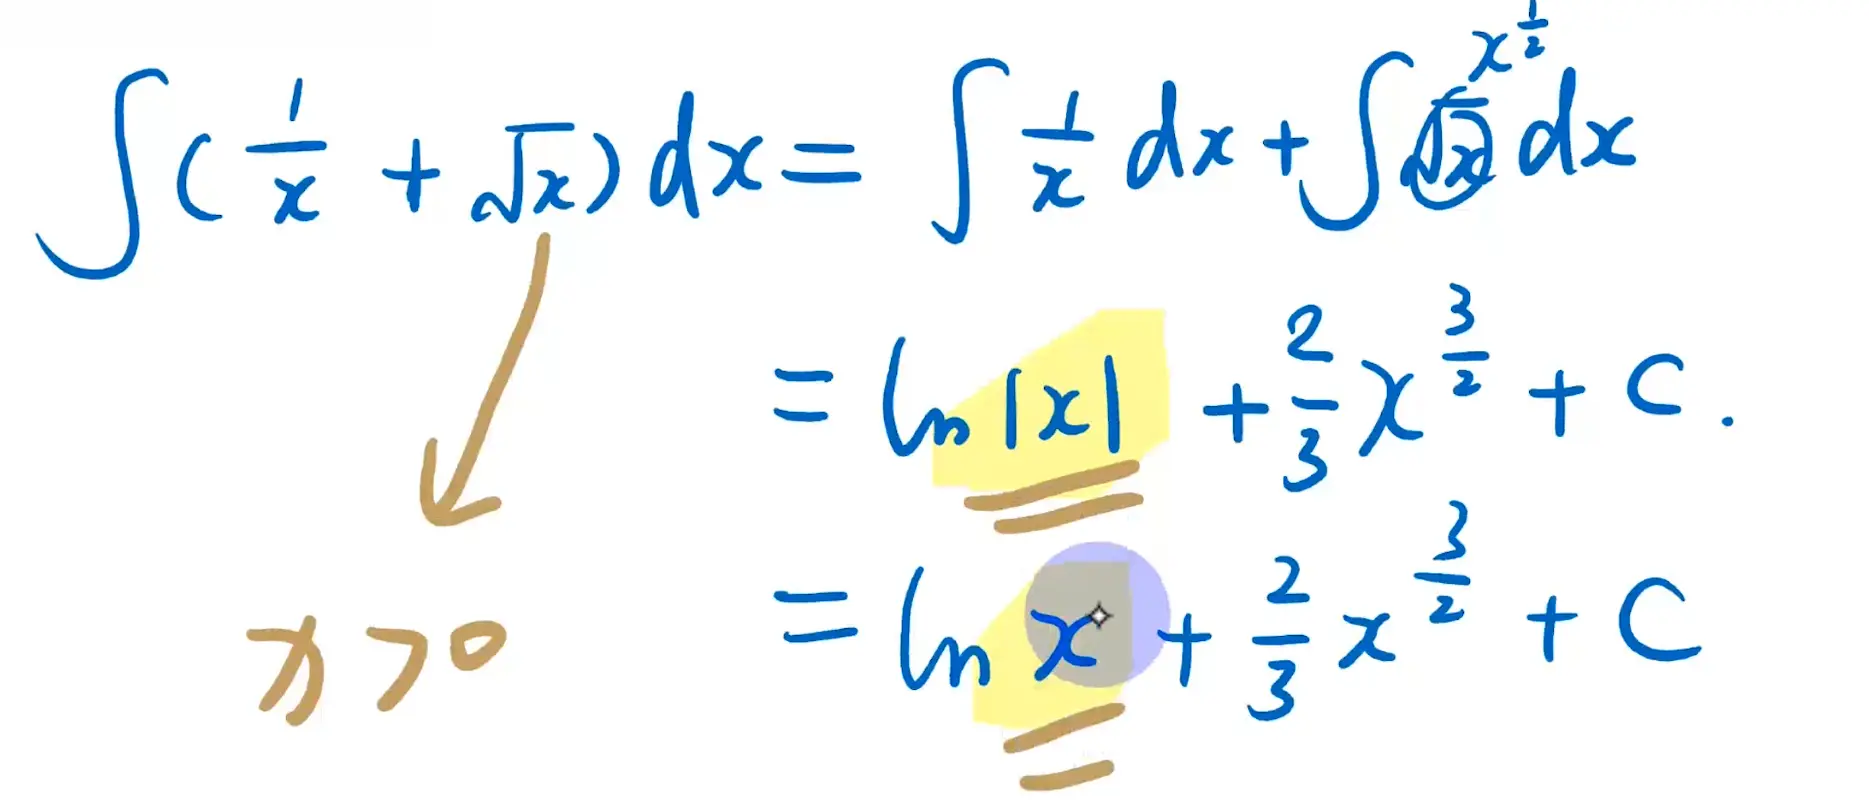 ∫(1/x + √x)dx = ∫ 1/x dx + ∫ √x dx
x^(1/2)
= ln|x| + 2/3 x^(3/2) + C.
x>0
= ln x + 2/3 x^(3/2) + C